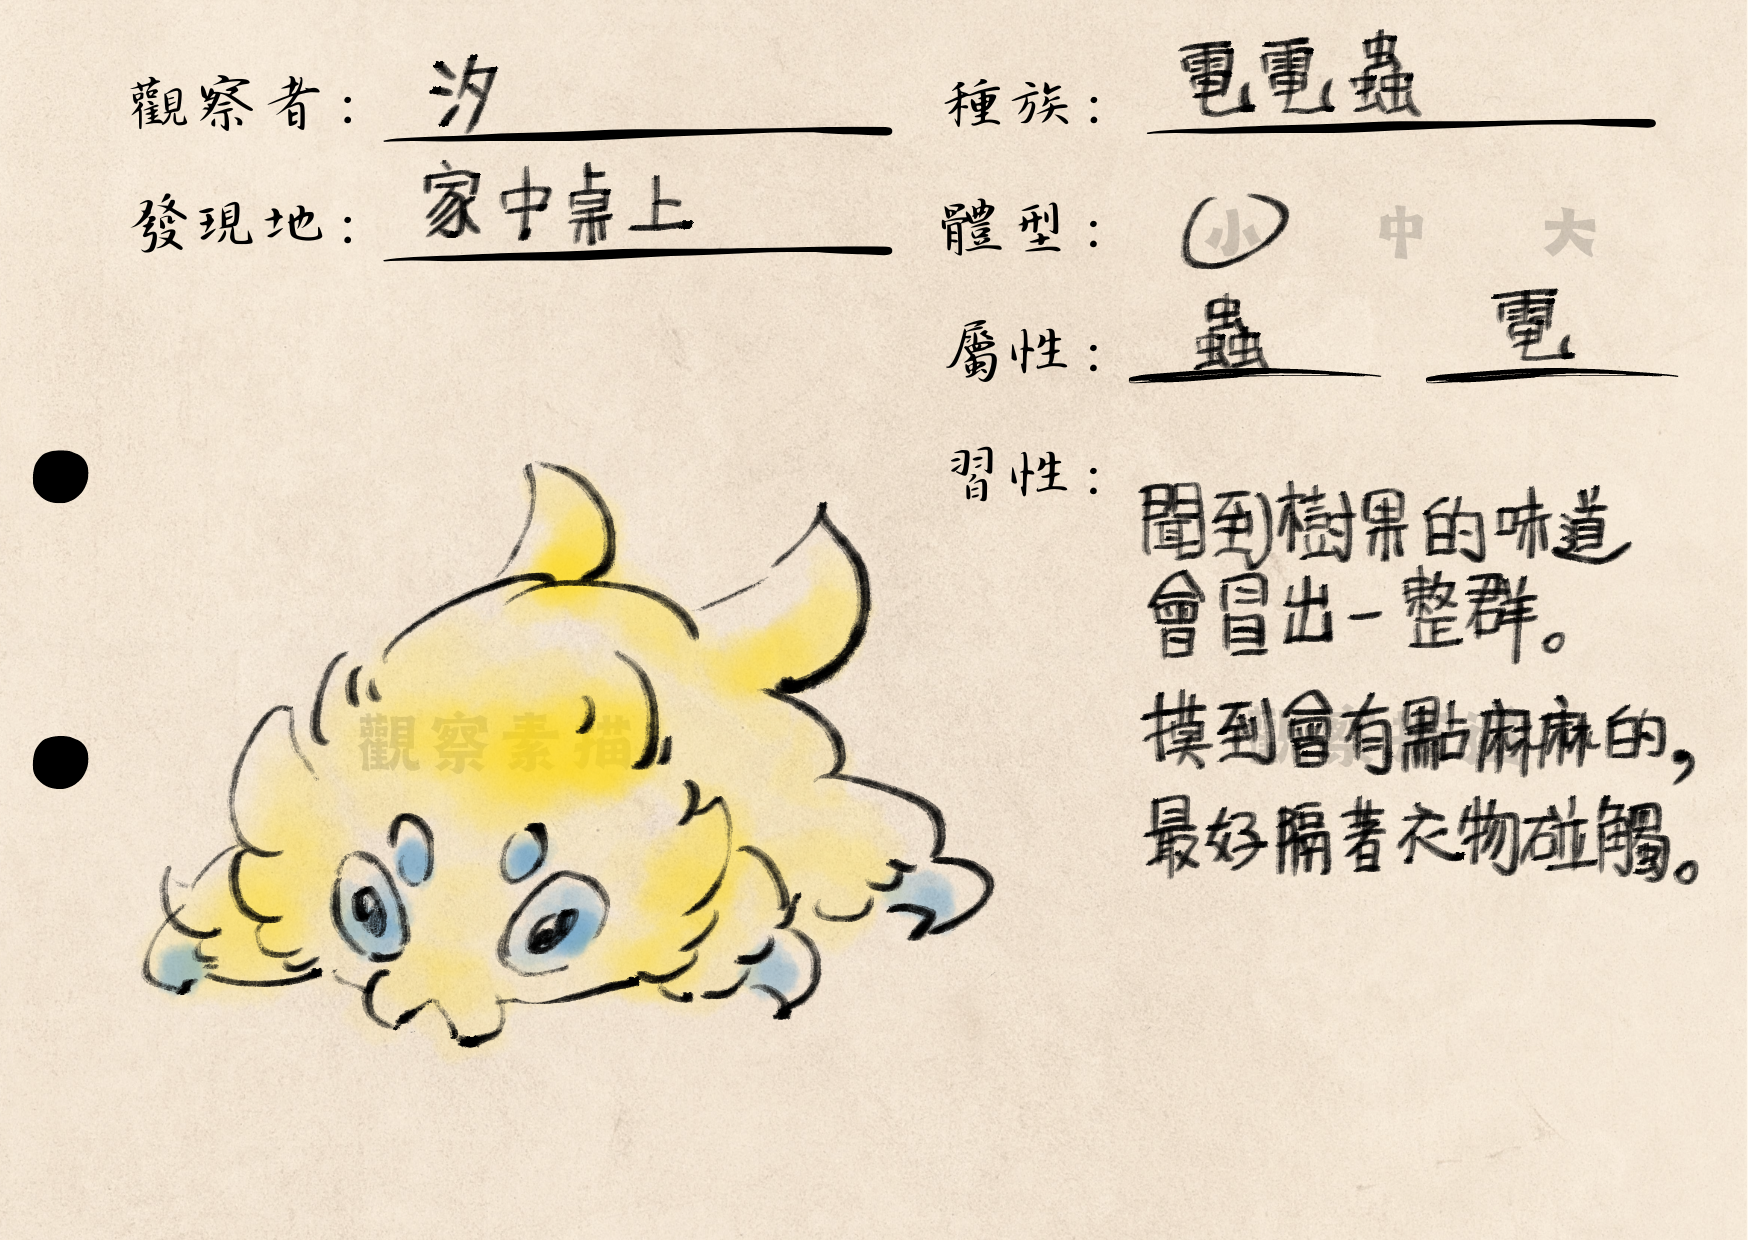 觀察者： 汐
發現地： 家中桌上
種族： 電電蟲
體型： 小 中 大
屬性： 蟲 電
習性：
聞到樹果的味道
會冒出一整群。
摸到會有點麻麻的，
最好隔著衣物碰觸。
觀察素描